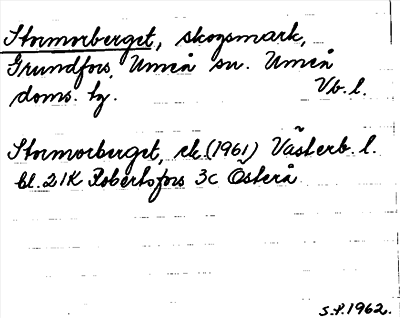 Stormorberget, skogsmark,
Grundfors, Umeå sn. Umeå
doms. hg. Vb. l.
Stormorberget, ek. (1961) Västerb. l.
bl. 21K Robertsfors 3c Österå
S.P. 1962.